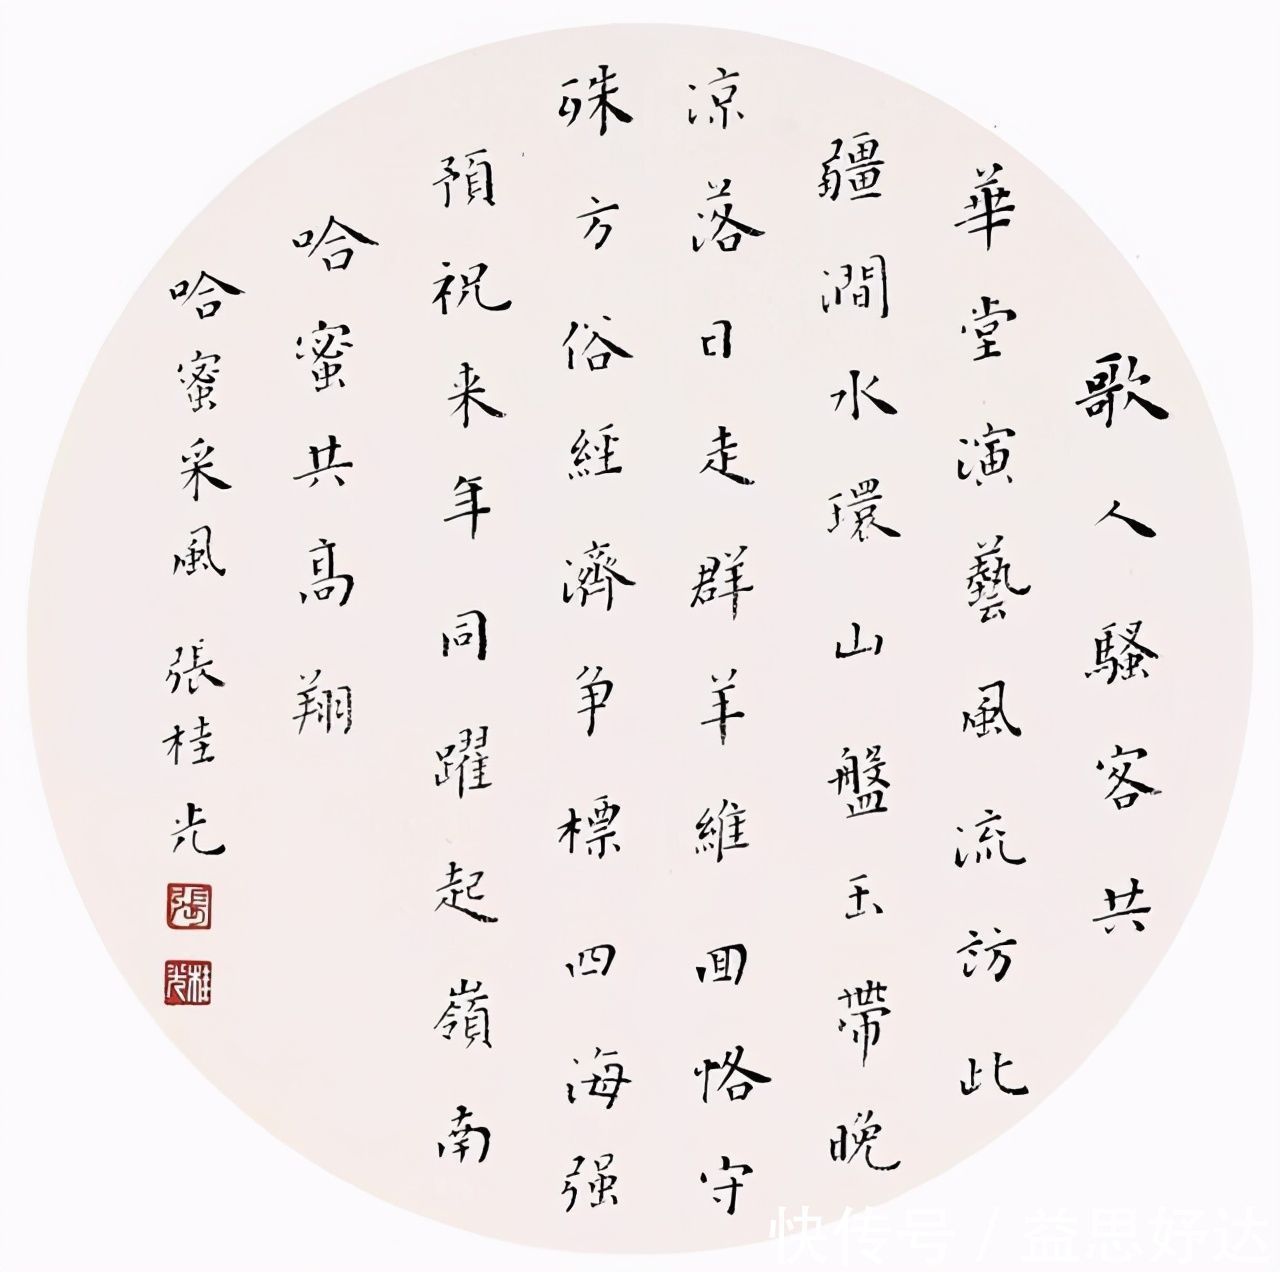 歌人騷客共
華堂演藝風流訪此
疆澗水環山盤玉帶晚
凉落日走群羊維回恪守
殊方俗經濟争標四海强
預祝来年同躍起嶺南
哈蜜共高翔
哈蜜采風 張桂光
張
桂光
快传号 / 益思妤达